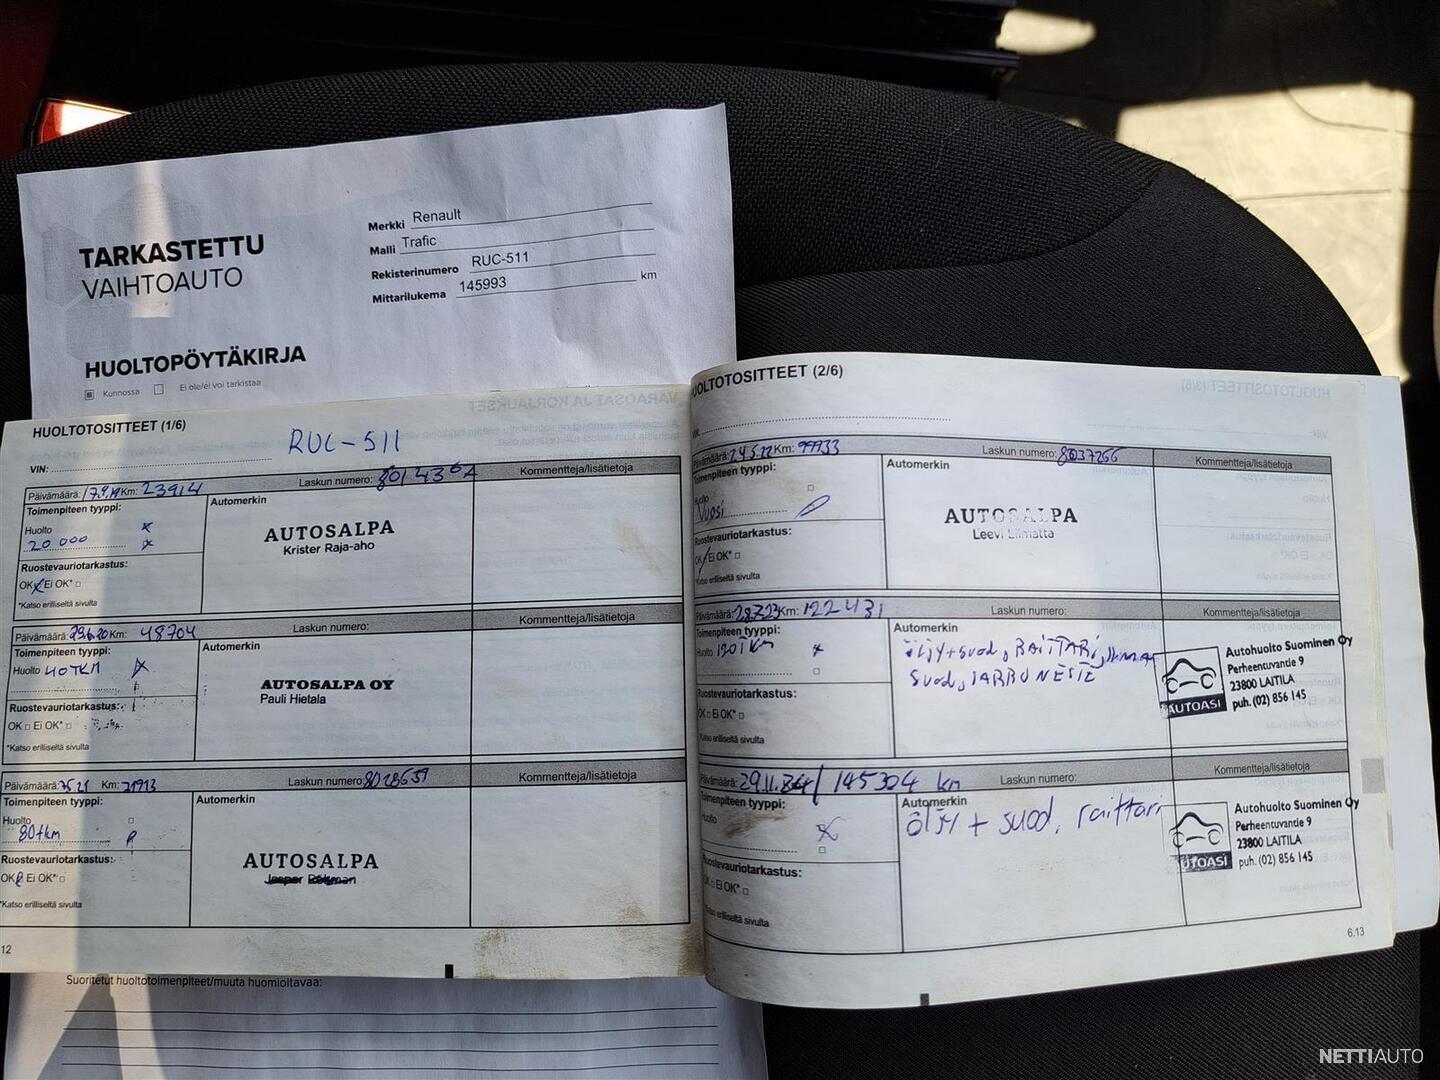 TARKASTETTU
VAIHTOAUTO
Merkki Renault
Malli Trafic
Rekisterinumero RUC-511
Mittarilukema 145993 km
HUOLTOPÖYTÄKIRJA
Kunnossa Ei ole/ei voi tarkistaa
HUOLTOTOSITTEET (1/6)
RUC-511
VIN:
Päivämäärä: 17.9.19 Km: 23914 Laskun numero: Kommentteja/lisätietoja
Toimenpiteen tyyppi: Automerkin
Huolto x
20 000 x
AUTOSALPA
Krister Raja-aho
Ruostevauriotarkastus:
OK Ei OK*
*Katso erilliseltä sivulta
Päivämäärä: 29.6.20 Km: 48704 Laskun numero: Kommentteja/lisätietoja
Toimenpiteen tyyppi: Automerkin
Huolto 40TKM x
AUTOSALPA OY
Pauli Hietala
Ruostevauriotarkastus:
OK Ei OK*
*Katso erilliseltä sivulta
Päivämäärä: 7.5.21 Km: Laskun numero: 8028659 Kommentteja/lisätietoja
Toimenpiteen tyyppi: Automerkin
Huolto
80tkm
AUTOSALPA
Ruostevauriotarkastus:
OK Ei OK*
*Katso erilliseltä sivulta
12
HUOLTOTOSITTEET (2/6)
VIN:
Päivämäärä: 24.5.22 Km: 99933 Laskun numero: 8037266 Kommentteja/lisätietoja
Toimenpiteen tyyppi: Automerkin
Huolto
Vuosi
AUTOSALPA
Leevi Liimatta
Ruostevauriotarkastus:
OK Ei OK*
*Katso erilliseltä sivulta
Päivämäärä: Km: 122431 Laskun numero: Kommentteja/lisätietoja
Toimenpiteen tyyppi: Automerkin
Huolto 120TKM x
öljy+suod, RAITTARI, ilman
suod, JARRUNESTE
AUTOASI
Autohuolto Suominen Oy
Perheentuvantie 9
23800 LAITILA
puh. (02) 856 145
Ruostevauriotarkastus:
OK Ei OK*
*Katso erilliseltä sivulta
Päivämäärä: 29.11.24 / 145324 km Laskun numero: Kommentteja/lisätietoja
Toimenpiteen tyyppi: Automerkin
Huolto x
öljy + suod, raittari
AUTOASI
Autohuolto Suominen Oy
Perheentuvantie 9
23800 LAITILA
puh. (02) 856 145
Ruostevauriotarkastus:
OK Ei OK*
*Katso erilliseltä sivulta
6.13
Suoritetut huoltotoimenpiteet/muuta huomioitavaa:
NETTIAUTO